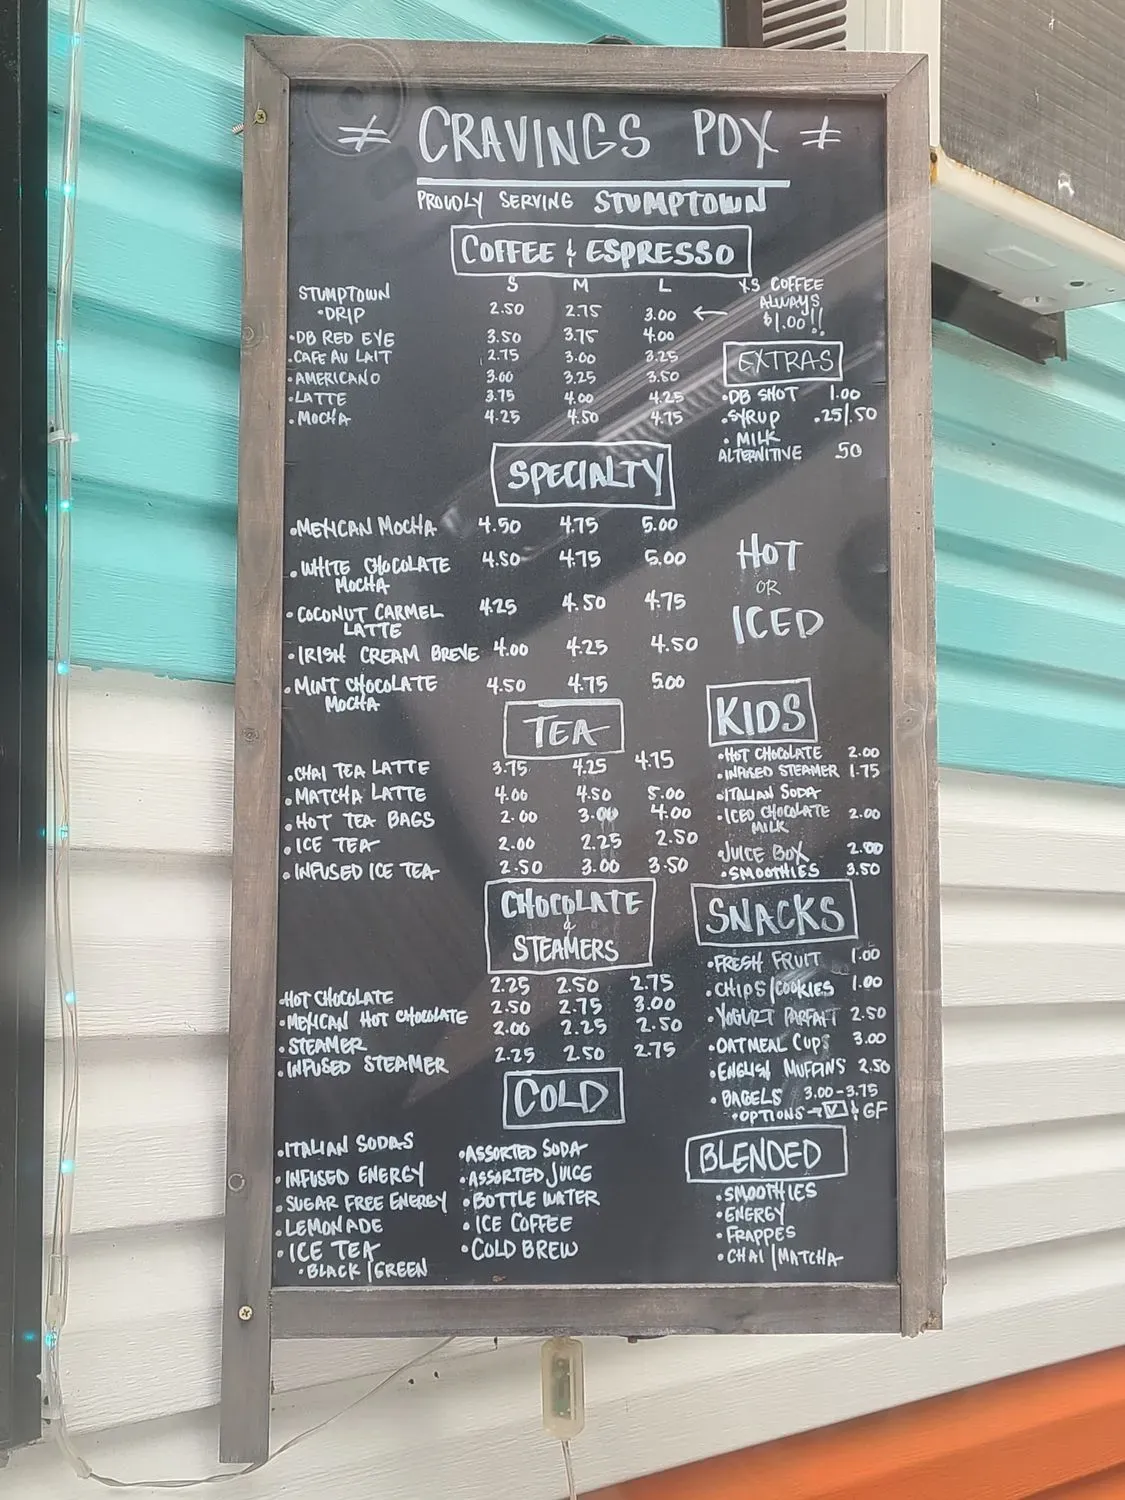 ≠ CRAVINGS PDX ≠
PROUDLY SERVING STUMPTOWN
COFFEE & ESPRESSO
S M L
STUMPTOWN
•DRIP 2.50 2.75 3.00 ←
•DB RED EYE 3.50 3.75 4.00
•CAFE AU LAIT 2.75 3.00 3.25
•AMERICANO 3.00 3.25 3.50
•LATTE 3.75 4.00 4.25
•MOCHA 4.25 4.50 4.75
XS COFFEE
ALWAYS
$1.00!!
EXTRAS
•DB SHOT 1.00
•SYRUP .25/.50
•MILK
ALTERNITIVE 50
SPECIALTY
•MEXICAN MOCHA 4.50 4.75 5.00
•WHITE CHOCOLATE 4.50 4.75 5.00
MOCHA
•COCONUT CARMEL 4.25 4.50 4.75
LATTE
•IRISH CREAM BREVE 4.00 4.25 4.50
•MINT CHOCOLATE 4.50 4.75 5.00
MOCHA
HOT
OR
ICED
TEA
•CHAI TEA LATTE 3.75 4.25 4.75
•MATCHA LATTE 4.00 4.50 5.00
•HOT TEA BAGS 2.00 3.00 4.00
•ICE TEA 2.00 2.25 2.50
•INFUSED ICE TEA 2.50 3.00 3.50
KIDS
•HOT CHOCOLATE 2.00
•INFUSED STEAMER 1.75
•ITALIAN SODA
•ICED CHOCOLATE 2.00
MILK
JUICE BOX 2.00
•SMOOTHIES 3.50
CHOCOLATE
&
STEAMERS
•HOT CHOCOLATE 2.25 2.50 2.75
•MEXICAN HOT CHOCOLATE 2.50 2.75 3.00
•STEAMER 2.00 2.25 2.50
•INFUSED STEAMER 2.25 2.50 2.75
SNACKS
•FRESH FRUIT 1.00
•CHIPS/COOKIES 1.00
•YOGURT PARFAIT 2.50
•OATMEAL CUPS 3.00
•ENGLISH MUFFINS 2.50
•BAGELS 3.00-3.75
•OPTIONS → V & GF
COLD
•ITALIAN SODAS
•INFUSED ENERGY
•SUGAR FREE ENERGY
•LEMONADE
•ICE TEA
•BLACK/GREEN
•ASSORTED SODA
•ASSORTED JUICE
•BOTTLE WATER
•ICE COFFEE
•COLD BREW
BLENDED
•SMOOTHIES
•ENERGY
•FRAPPES
•CHAI/MATCHA